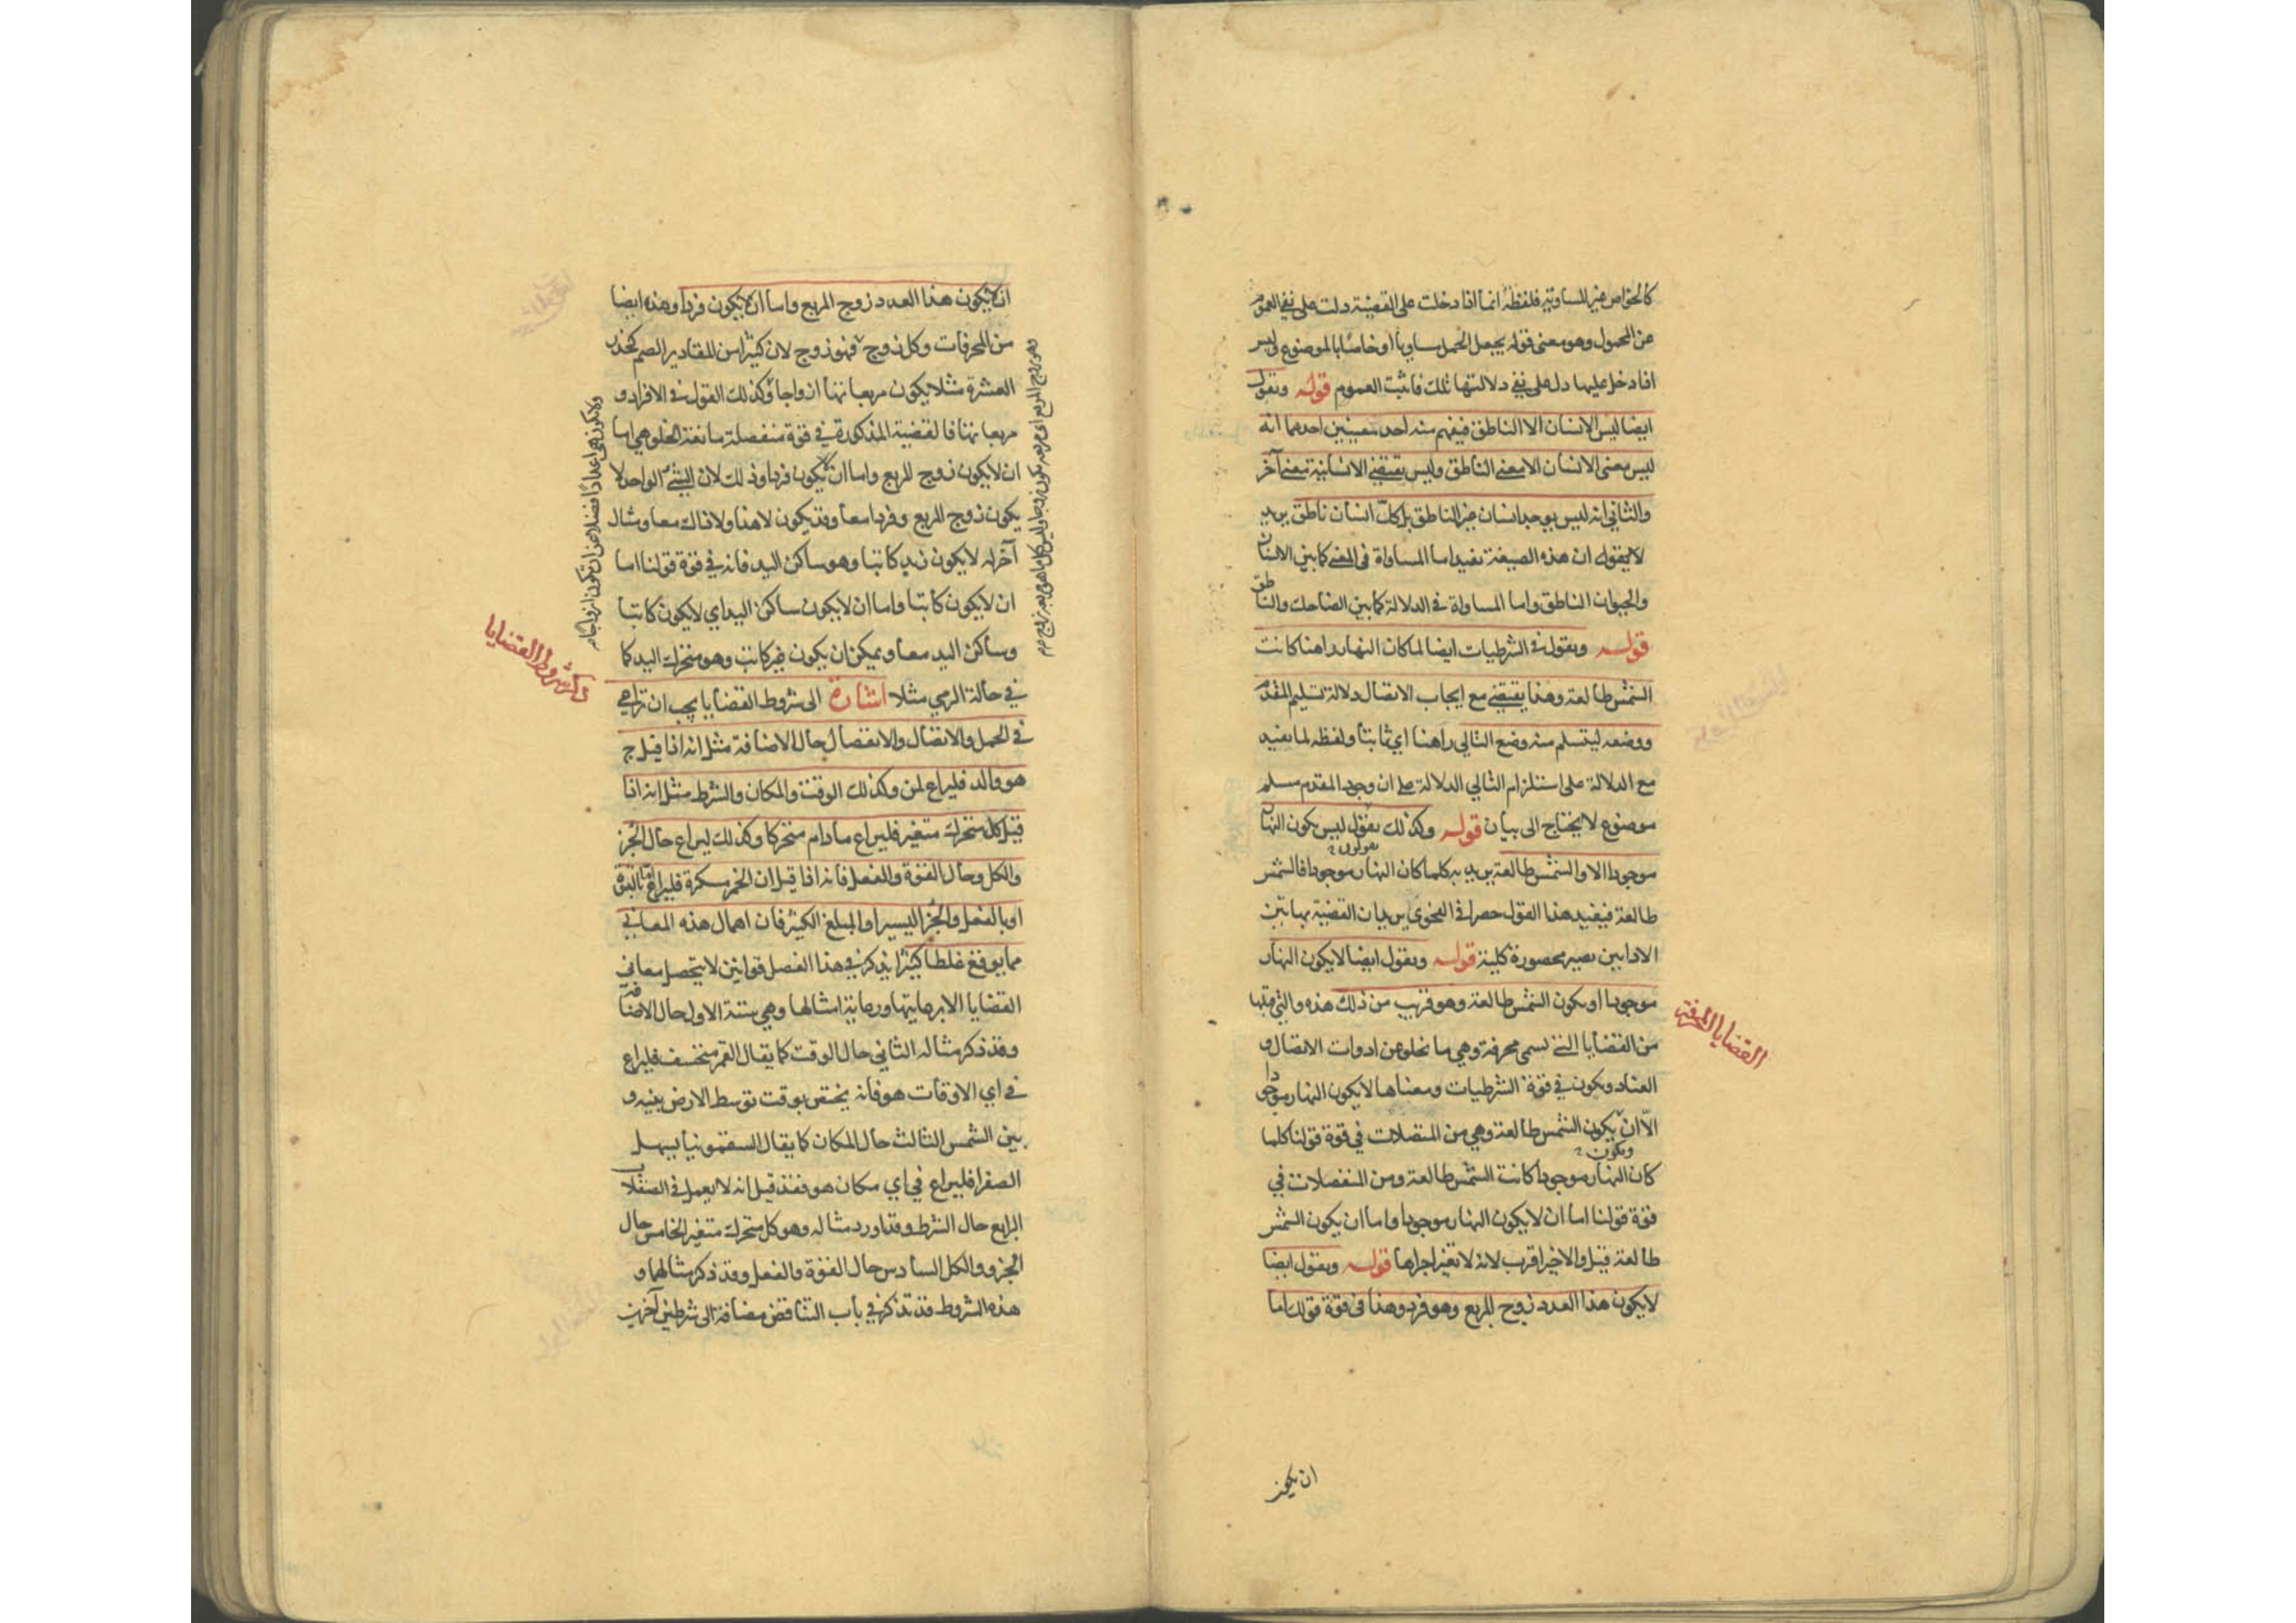 كالخواص غير المساوية فلفظة انما اذا دخلت على القضية دلت على نفي العموم
عن المحمول وهو معنى قوله يجعل الحمل مساويا او خاصا بالموضوع وليس
اذا دخل عليها دل على نفي دلالتها تلك فاثبت العموم قوله ونقول
ايضا ليس الانسان الا الناطق فيفهم منه احد معنيين احدهما انه
ليس معنى الانسان الا معنى الناطق وليس يقتضي الانسانية معنى آخر
والثاني انه ليس يوجد انسان غير الناطق بل كل انسان ناطق يريد
لا بقوله ان هذه الصيغة تفيد اما المساواة في المعنى كما بين الانسان
والحيوان الناطق واما المساواة في الدلالة كما بين الضاحك والناطق
قوله ونقول في الشرطيات ايضا لما كان النهار راهنا كانت
الشمس طالعة وهذا يقتضي مع ايجاب الاتصال دلالة تسليم المقدم
ووضعه ليتسلم منه وضع التالي راهنا اي ثابتا ولفظه لما تفيد
مع الدلالة على استلزام التالي الدلالة على ان وجود المقدم مسلم
موضوع لا يحتاج الى بيان قوله وكذلك نقول ليس يكون النهار
موجودا الا والشمس طالعة يريد به كلما كان النهار موجودا فالشمس
طالعة فيفيد هذا القول حصرا في الفحوى يريد ان القضية بهاتين
الاداتين تصير محصورة كلية قوله ونقول ايضا لا يكون النهار
موجودا او يكون الشمس طالعة وهو قريب من ذلك هذه والتي قبلها
من القضايا التي تسمى محرفة وهي ما تخلو عن ادوات الاتصال و
العناد ويكون في قوة الشرطيات ومعناها لا يكون النهار موجودا
الا ان يكون الشمس طالعة وهي من المتصلات في قوة قولنا كلما
كان النهار موجودا كانت الشمس طالعة ومن المنفصلات في
قوة قولنا اما ان لا يكون النهار موجودا واما ان يكون الشمس
طالعة قيل والاخير اقرب لانه لا تغير اجزاها قوله ونقول ايضا
لا يكون هذا العدد زوج المربع وهو فرد وهذا في قوة قولك اما
القضايا المحرفة
ان يكون
ان لا يكون هذا العدد زوج المربع واما ان لا يكون فردا وهذه ايضا
من المحرفات وكل زوج فهو زوج لان كثيرا من المقادير الصم كجذر
العشرة مثلا يكون مربعاتها ازواجا وكذلك القول في الافراد و
مربعاتها فالقضية المذكورة في قوة منفصلة مانعة الخلو هي اما
ان لا يكون زوج المربع واما ان لا يكون فردا وذلك لان الشيء الواحد لا
يكون زوج المربع وفردا معا وقد يكون لا هذا ولا ذاك معا ومثال
آخر له لا يكون زيد كاتبا وهو ساكن اليد فانه في قوة قولنا اما
ان لا يكون كاتبا واما ان لا يكون ساكن اليد اي لا يكون كاتبا
وساكن اليد معا ويمكن ان يكون غير كاتب وهو متحرك اليد كما
في حالة الرمي مثلا اشارة الى شروط القضايا يجب ان تراعي
في الحمل والاتصال والانفصال حال الاضافة مثل انه اذا قيل ج
هو والد فليراع لمن وكذلك الوقت والمكان والشرط مثل انه اذا
قيل كل متحرك متغير فليراع ما دام متحركا وكذلك ليراع حال الجزء
والكل وحال القوة والفعل فانه اذا قيل ان الخمر مسكرة فليراع أبالقوة
او بالفعل والجزء اليسير او المبلغ الكثير فان اهمال هذه المعاني
مما يوقع غلطا كثيرا يذكر في هذا الفصل قوانين لا يتحصل معاني
القضايا الا برعايتها ورعاية امثالها وهي ستة الاول حال الاضافة
وقد ذكر مثاله الثاني حال الوقت كما يقال القمر منخسف فليراع
في اي الاوقات هو فانه يختص بوقت توسط الارض بينه و
بين الشمس الثالث حال المكان كما يقال السقمونيا يسهل
الصفرا فليراع في اي مكان هو فقد قيل انه لا يعمل في الصقلاب
الرابع حال الشرط وقد اورد مثاله وهو كل متحرك متغير الخامس حال
الجزو والكل السادس حال القوة والفعل وقد ذكر مثالهما و
هذه الشروط قد تذكر في باب التناقض مضافة الى شرطين آخرين
ذكر شروط القضايا